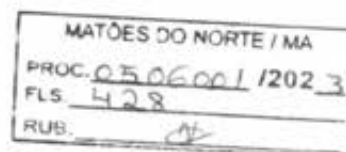 MATÕES DO NORTE / MA
PROC. 0506001 /2023
FLS. 428
RUB.